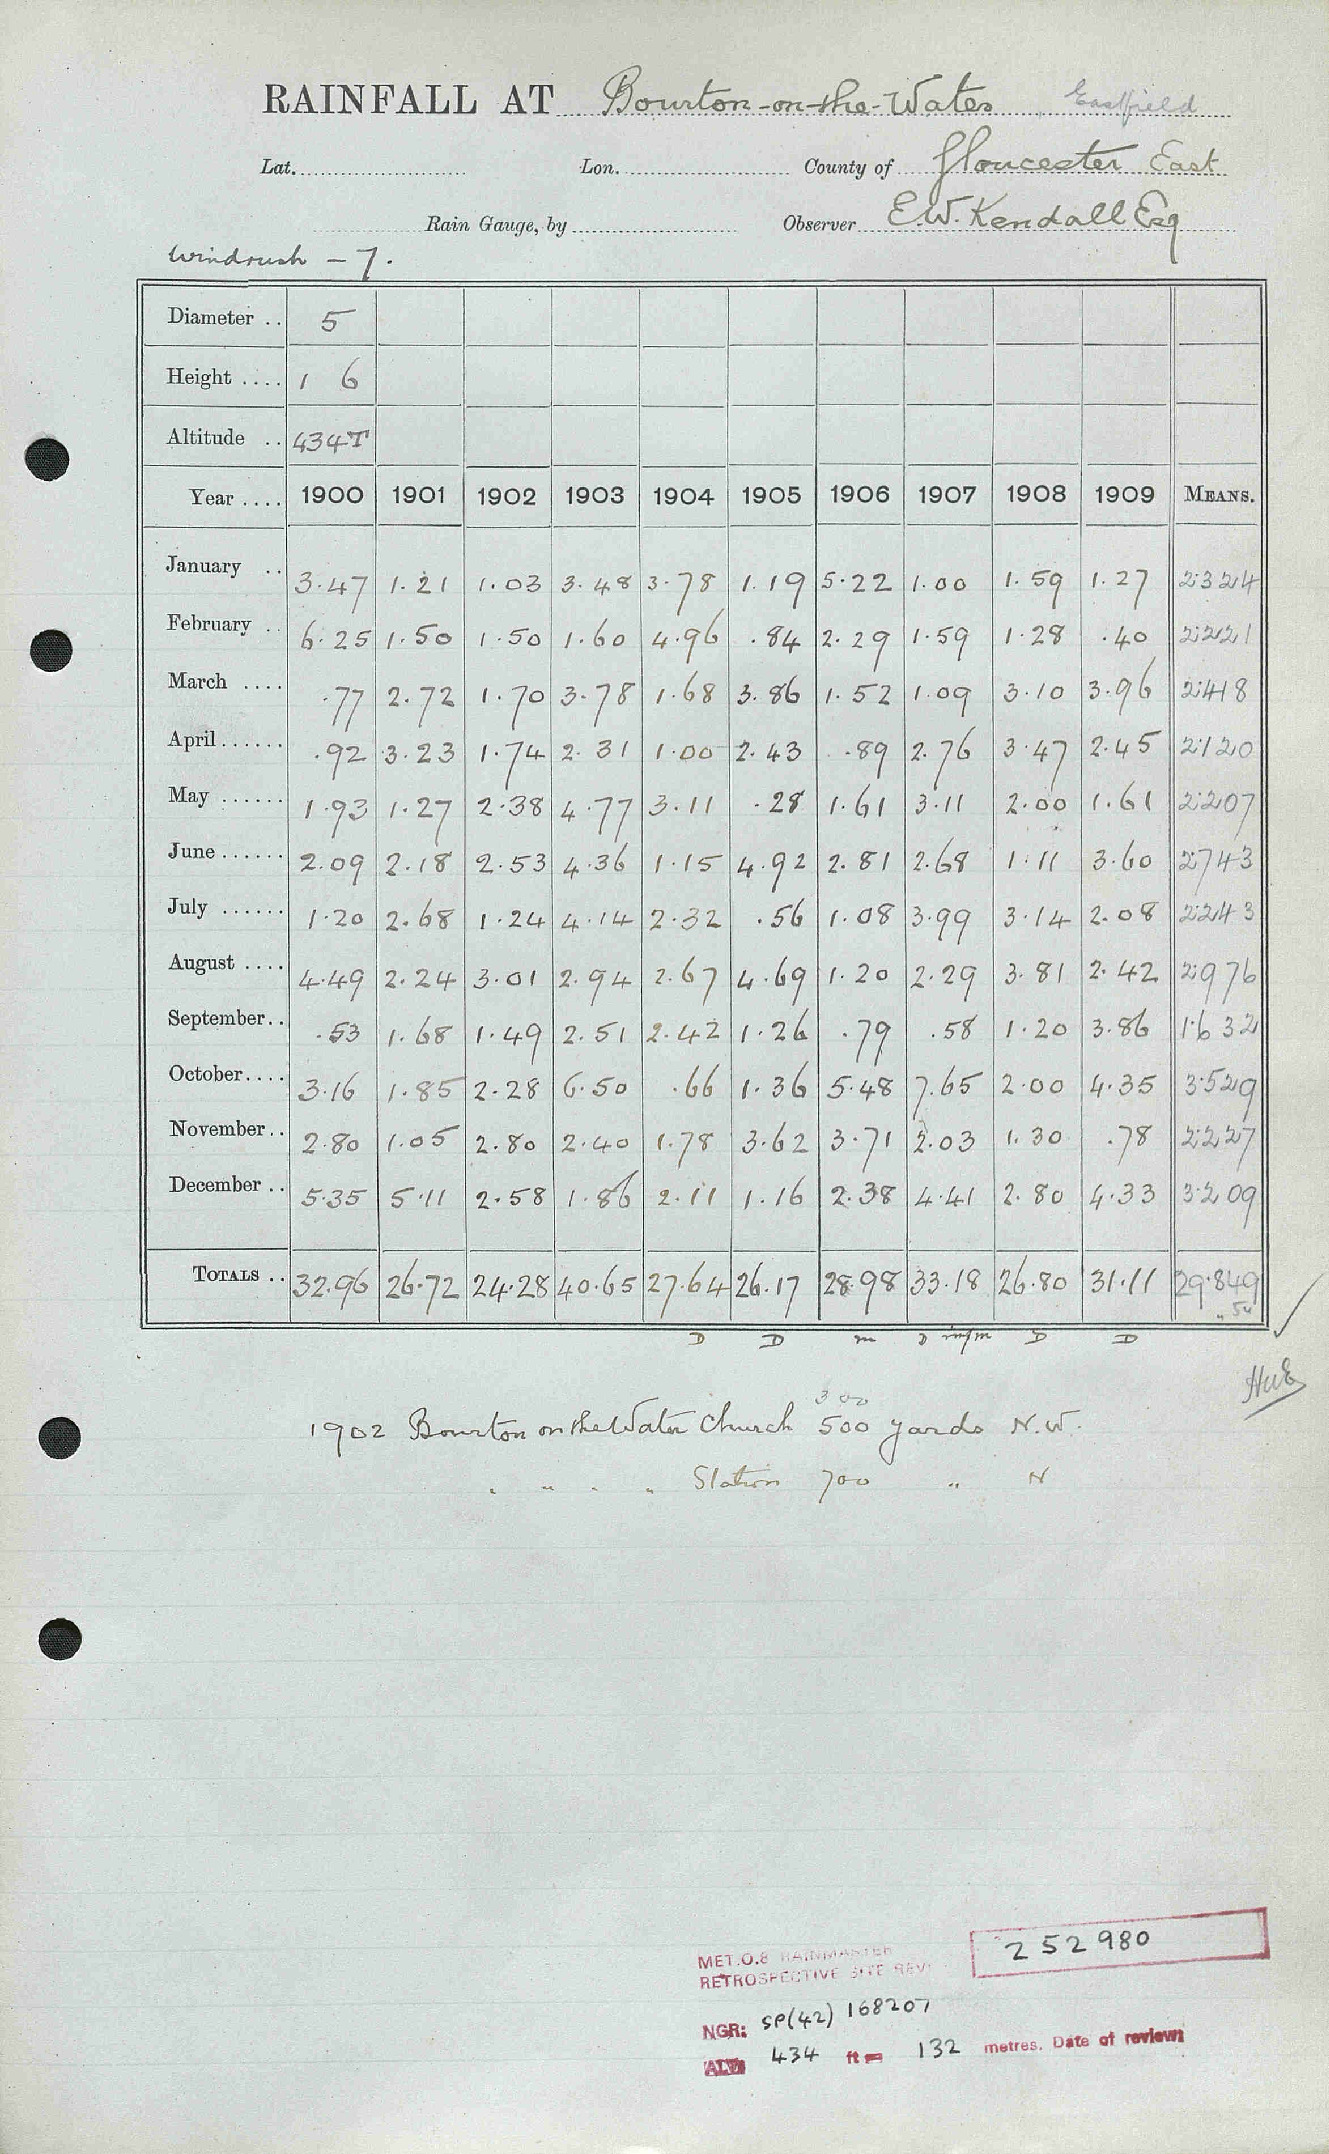 RAINFALL AT Bourton-on-the-Water Eastfield
Lat. Lon. County of Gloucester East
Rain Gauge, by Observer E.W. Kendall Esq
Windrush - 7.
Diameter .. 5
Height .... 1 6
Altitude .. 434T
Year .... 1900 1901 1902 1903 1904 1905 1906 1907 1908 1909 MEANS.
January .. 3.47 1.21 1.03 3.48 3.78 1.19 5.22 1.00 1.59 1.27 2.324
February .. 6.25 1.50 1.50 1.60 4.96 .84 2.29 1.59 1.28 .40 2.221
March .... .77 2.72 1.70 3.78 1.68 3.86 1.52 1.09 3.10 3.96 2.418
April ...... .92 3.23 1.74 2.31 1.00 2.43 .89 2.76 3.47 2.45 2.120
May ...... 1.93 1.27 2.38 4.77 3.11 .28 1.61 3.11 2.00 1.61 2.207
June ...... 2.09 2.18 2.53 4.36 1.15 4.92 2.81 2.68 1.11 3.60 2.743
July ...... 1.20 2.68 1.24 4.14 2.32 .56 1.08 3.99 3.14 2.08 2.243
August .... 4.49 2.24 3.01 2.94 2.67 4.69 1.20 2.29 3.81 2.42 2.976
September.. .53 1.68 1.49 2.51 2.42 1.26 .79 .58 1.20 3.86 1.632
October.... 3.16 1.85 2.28 6.50 .66 1.36 5.48 7.65 2.00 4.35 3.529
November.. 2.80 1.05 2.80 2.40 1.78 3.62 3.71 2.03 1.30 .78 2.227
December .. 5.35 5.11 2.58 1.86 2.11 1.16 2.38 4.41 2.80 4.33 3.209
TOTALS .. 32.96 26.72 24.28 40.65 27.64 26.17 28.98 33.18 26.80 31.11 29.849
D D m D D D
300
1902 Bourton on the Water Church 500 yards N.W.
" " " " Station 700 " N
MET.O.8 RAINMASTER
RETROSPECTIVE SITE REV
252980
NGR: SP(42) 168207
ALT: 434 ft = 132 metres. Date of review: